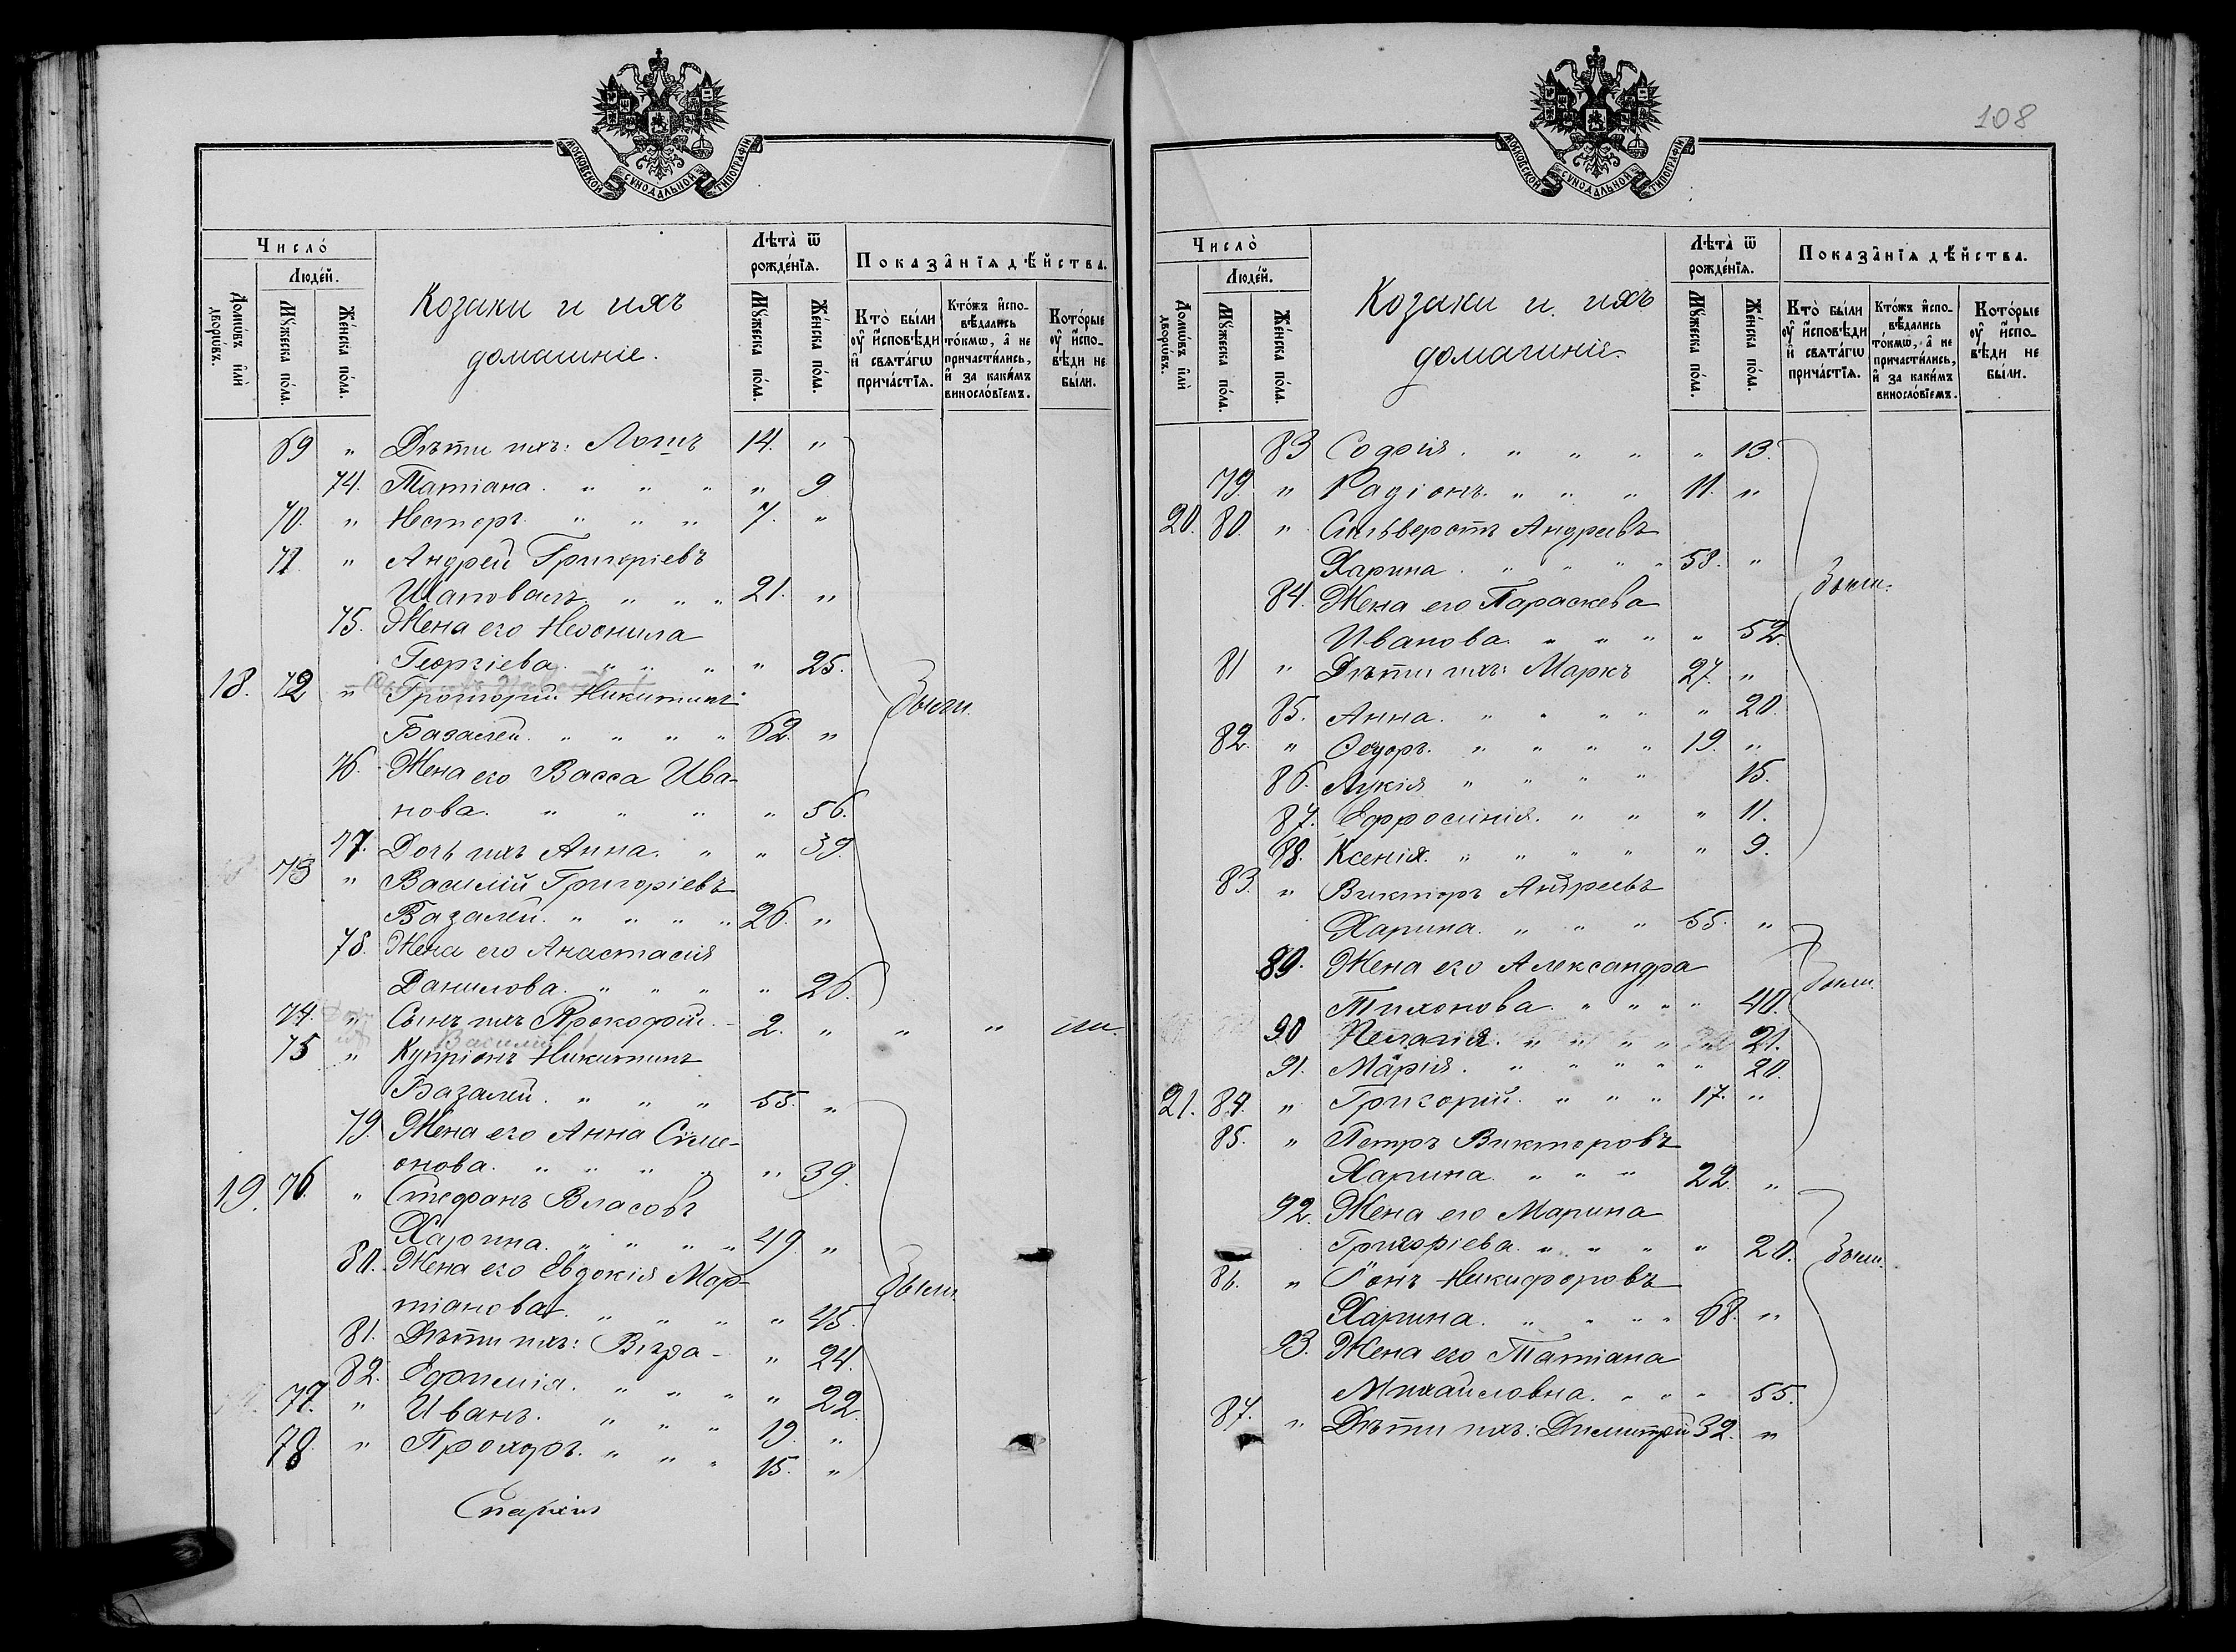 МОСКОВСКОЙ СѴНОДАЛЬНОЙ ТИПОГРАФІИ
Число̀
Людей.
Домѡвъ и҆лѝ дворѡвъ.
Мꙋжеска пола.
Женска пола.
Козаки и ихъ
домашніе.
Лѣта̀ ѿ рожденїѧ.
Мꙋжеска пола.
Женска пола.
Показанїѧ дѣйства.
Кто̀ были ᲂу҆ и҆сповѣди и҆ свѧтагѡ причастїѧ.
Ктожъ и҆сповѣдались токмѡ, а҆ не причастились, и҆ за какимъ винословїемъ.
Которые ᲂу҆ и҆сповѣди не были.
69 " Дѣти ихъ: Логинъ 14. "
74. Татіана. " " " " 9
70. " Несторъ. " " " 7. "
71. " Андрей Григоріевъ
Шаповалъ " " " 21. "
75. Жена его Неонила
Георгіева. " " " " 25.
18. 72 " Григорій Никитинъ
Базалей. " " " " 62. "
были.
76. Жена его Васса Ива-
нова. " " " " 56.
77. Дочь ихъ Анна. " " 39.
73 " Василій Григоріевъ
Базалей. " " " " 26. "
78. Жена его Анастасія
Данилова. " " " " 26.
74. " Сынъ ихъ Прокофій. - 2. " " "
75 " Купріянъ Никитинъ
Базалей. " " " 55. "
79. Жена его Анна Симе-
онова. " " " " " 39.
19. 76. " Стефанъ Власовъ
Харина. " " " " 49 "
80. Жена его Евдокія Мар-
тіанова. " " " " 45.
были.
81. Дѣти ихъ: Вѣра - " 24.
82. Ефимія. " " " " 22.
77. " Иванъ. " " " 19. "
78. " Прохоръ. " " " 15. "
108
МОСКОВСКОЙ СѴНОДАЛЬНОЙ ТИПОГРАФІИ
Число̀
Людей.
Домѡвъ и҆лѝ дворѡвъ.
Мꙋжеска пола.
Женска пола.
Козаки и ихъ
домашніе.
Лѣта̀ ѿ рожденїѧ.
Мꙋжеска пола.
Женска пола.
Показанїѧ дѣйства.
Кто̀ были ᲂу҆ и҆сповѣди и҆ свѧтагѡ причастїѧ.
Ктожъ и҆сповѣдались токмѡ, а҆ не причастились, и҆ за какимъ винословїемъ.
Которые ᲂу҆ и҆сповѣди не были.
83 Софія. " " " " 13.
79. " Радіонъ. " " " 11. "
20. 80. " Сильверстъ Андреевъ
Харина. " " " " 58. "
были.
84. Жена его Параскева
Иванова. " " " " 52.
81 " Дѣти ихъ: Маркъ 27. "
85. Анна. " " " " " 20.
82. " Ѳедоръ. " " " " 19. "
86. Лукія " " " " 15.
87. Ефросинія. " " " 11.
88. Ксенія. " " " " " 9.
83. " Викторъ Андреевъ
Харина. " " " 55. "
89. Жена его Александра
Тихонова. " " " " 40.
были.
90 Пелагія. " " " " " 21.
91. Марія. " " " " " 20.
21. 84. " Григорій. " " " 17. "
85. " Петръ Викторовъ
Харина. " " " 22. "
92. Жена его Марина
Григоріева. " " " " 20.
были.
86. " Іонъ Никифоровъ
Харина. " " " " 68. "
93. Жена его Татіана
Михайловна. " " " 55.
87. " Дѣти ихъ: Димитрій 32. "